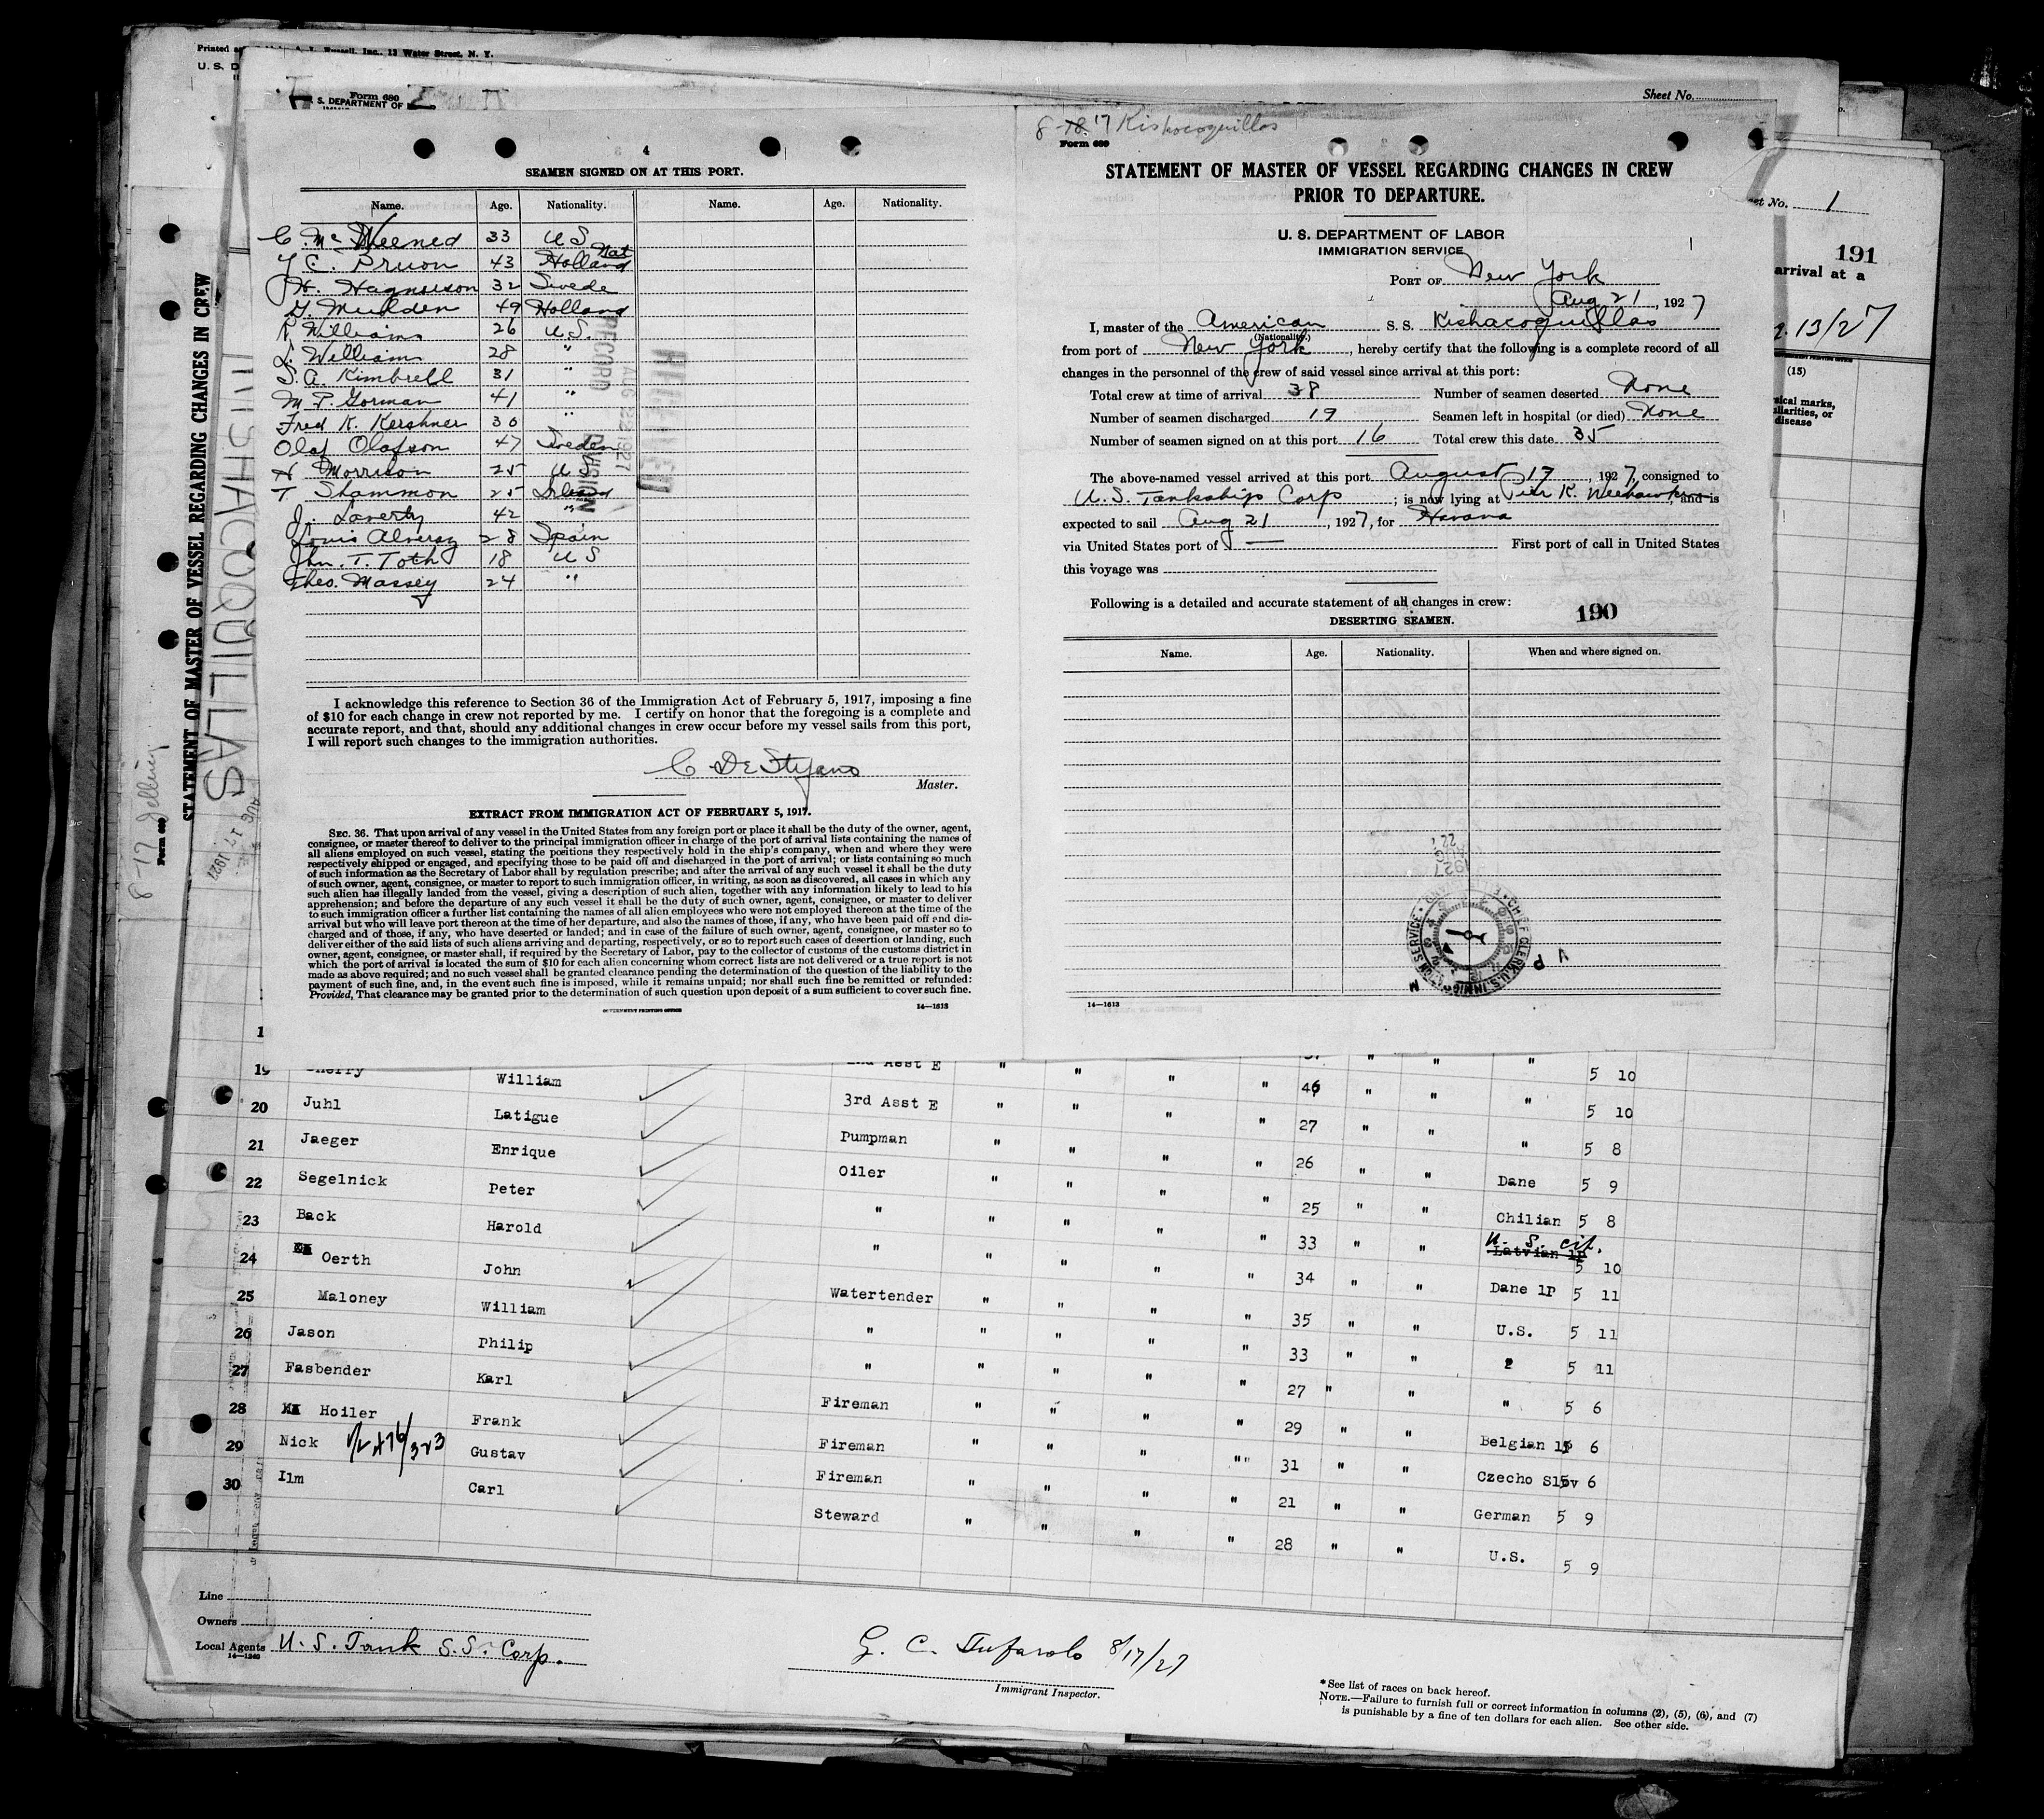 Printed
Russell, Inc., 13 Water Street, N. Y.
U. S. D
Form 680
S. DEPARTMENT OF
Sheet No.
4
SEAMEN SIGNED ON AT THIS PORT.
Name. Age. Nationality. Name. Age. Nationality.
33 U S
43 Holland Nat
32 Swede
49 Holland
R Williams 26 U.S.
L. Williams 28 "
S. A. Kimbrell 31 "
M P. Gorman 41 "
Fred K. Kershner 30 "
Olaf Olafson 47 Sweden
N Morrison 25 U S
T Shammon 25
J. Laverty 42 "
Louis 28 Spain
Jhn. T. Toth 18 U S
Theo. Massey 24 "
RECORD AUG 22 1927 DIVISION
I acknowledge this reference to Section 36 of the Immigration Act of February 5, 1917, imposing a fine
of $10 for each change in crew not reported by me. I certify on honor that the foregoing is a complete and
accurate report, and that, should any additional changes in crew occur before my vessel sails from this port,
I will report such changes to the immigration authorities.
Master.
EXTRACT FROM IMMIGRATION ACT OF FEBRUARY 5, 1917.
SEC. 36. That upon arrival of any vessel in the United States from any foreign port or place it shall be the duty of the owner, agent,
consignee, or master thereof to deliver to the principal immigration officer in charge of the port of arrival lists containing the names of
all aliens employed on such vessel, stating the positions they respectively hold in the ship's company, when and where they were
respectively shipped or engaged, and specifying those to be paid off and discharged in the port of arrival; or lists containing so much
of such information as the Secretary of Labor shall by regulation prescribe; and after the arrival of any such vessel it shall be the duty
of such owner, agent, consignee, or master to report to such immigration officer, in writing, as soon as discovered, all cases in which any
such alien has illegally landed from the vessel, giving a description of such alien, together with any information likely to lead to his
apprehension; and before the departure of any such vessel it shall be the duty of such owner, agent, consignee, or master to deliver
to such immigration officer a further list containing the names of all alien employees who were not employed thereon at the time of the
arrival but who will leave port thereon at the time of her departure, and also the names of those, if any, who have been paid off and dis-
charged and of those, if any, who have deserted or landed; and in case of the failure of such owner, agent, consignee, or master so to
deliver either of the said lists of such aliens arriving and departing, respectively, or so to report such cases of desertion or landing, such
owner, agent, consignee, or master shall, if required by the Secretary of Labor, pay to the collector of customs of the customs district in
which the port of arrival is located the sum of $10 for each alien concerning whom correct lists are not delivered or a true report is not
made as above required; and no such vessel shall be granted clearance pending the determination of the question of the liability to the
payment of such fine, and, in the event such fine is imposed, while it remains unpaid; nor shall such fine be remitted or refunded:
Provided, That clearance may be granted prior to the determination of such question upon deposit of a sum sufficient to cover such fine.
GOVERNMENT PRINTING OFFICE 14—1613
8-18. 17 Kishacoquillas
Form 680
STATEMENT OF MASTER OF VESSEL REGARDING CHANGES IN CREW
PRIOR TO DEPARTURE.
U. S. DEPARTMENT OF LABOR
IMMIGRATION SERVICE
PORT OF New York
Aug 21, 1927
I, master of the American S. S. Kishacoquillas
(Nationality.)
from port of New York, hereby certify that the following is a complete record of all
changes in the personnel of the crew of said vessel since arrival at this port:
Total crew at time of arrival 38 Number of seamen deserted None
Number of seamen discharged 19 Seamen left in hospital (or died) None
Number of seamen signed on at this port 16 Total crew this date 35
The above-named vessel arrived at this port August 17, 1927, consigned to
U.S. Tankships Corp; is now lying at Pier K. Weehawken, and is
expected to sail Aug 21, 1927, for Havana
via United States port of — First port of call in United States
this voyage was
Following is a detailed and accurate statement of all changes in crew:
190
DESERTING SEAMEN.
Name. Age. Nationality. When and where signed on.
CHIEF CLERK, U.S. IMMIGRATION SERVICE
14—1613
STATEMENT OF MASTER OF VESSEL REGARDING CHANGES IN CREW
KISHACOQUILLAS
AUG 17 1927
Form 680
8-17
Sheet No. 1
191
arrival at a
13/27
(15)
disease
19 Sherry William 2nd Asst E " " " " 37 " " " 5 10
20 Juhl Latigue 3rd Asst E " " " " 46 " " " 5 10
21 Jaeger Enrique Pumpman " " " " 27 " " " 5 8
22 Segelnick Peter Oiler " " " " 26 " " Dane 5 9
23 Back Harold " " " " " 25 " " Chilian 5 8
24 Oerth John " " " " " 33 " " Latvian 1P U. S. cit. 5 10
25 Maloney William Watertender " " " " 34 " " Dane 1P 5 11
26 Jason Philip " " " " " 35 " " U.S. 5 11
27 Fasbender Karl " " " " " 33 " " 5 11
28 Hoiler Frank Fireman " " " " 27 " " " 5 6
29 Nick Gustav Fireman " " " " 29 " " Belgian 1P 5 6
30 Ilm Carl Fireman " " " " 31 " " Czecho Slov 5 6
Steward " " " " 21 " " German 5 9
28 " " U.S. 5 9
Line
Owners
Local Agents U. S. Tank S.S. Corp.
14—1240
G. C. Tufarolo 8/17/27
Immigrant Inspector.
*See list of races on back hereof.
NOTE.—Failure to furnish full or correct information in columns (2), (5), (6), and (7)
is punishable by a fine of ten dollars for each alien. See other side.